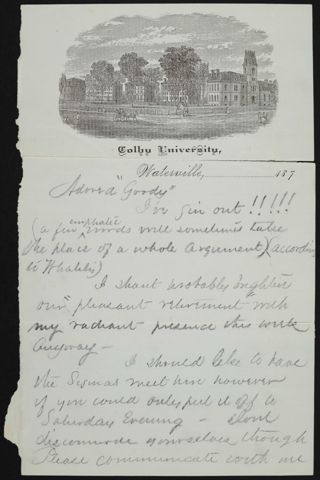 Colby University,
Waterville, 187
Adored "Goody"
I've gin out!!!!!
emphatic
(a few words will sometimes take
the place of a whole argument)(according
to Whately)
I shant probably brighten
our pleasant retirement with
my radiant presence this week
Anyway —
I should like to have
the meet here however
if you could only put it off to
Saturday Evening — Dont
discommode yourselves though
Please communicate with me